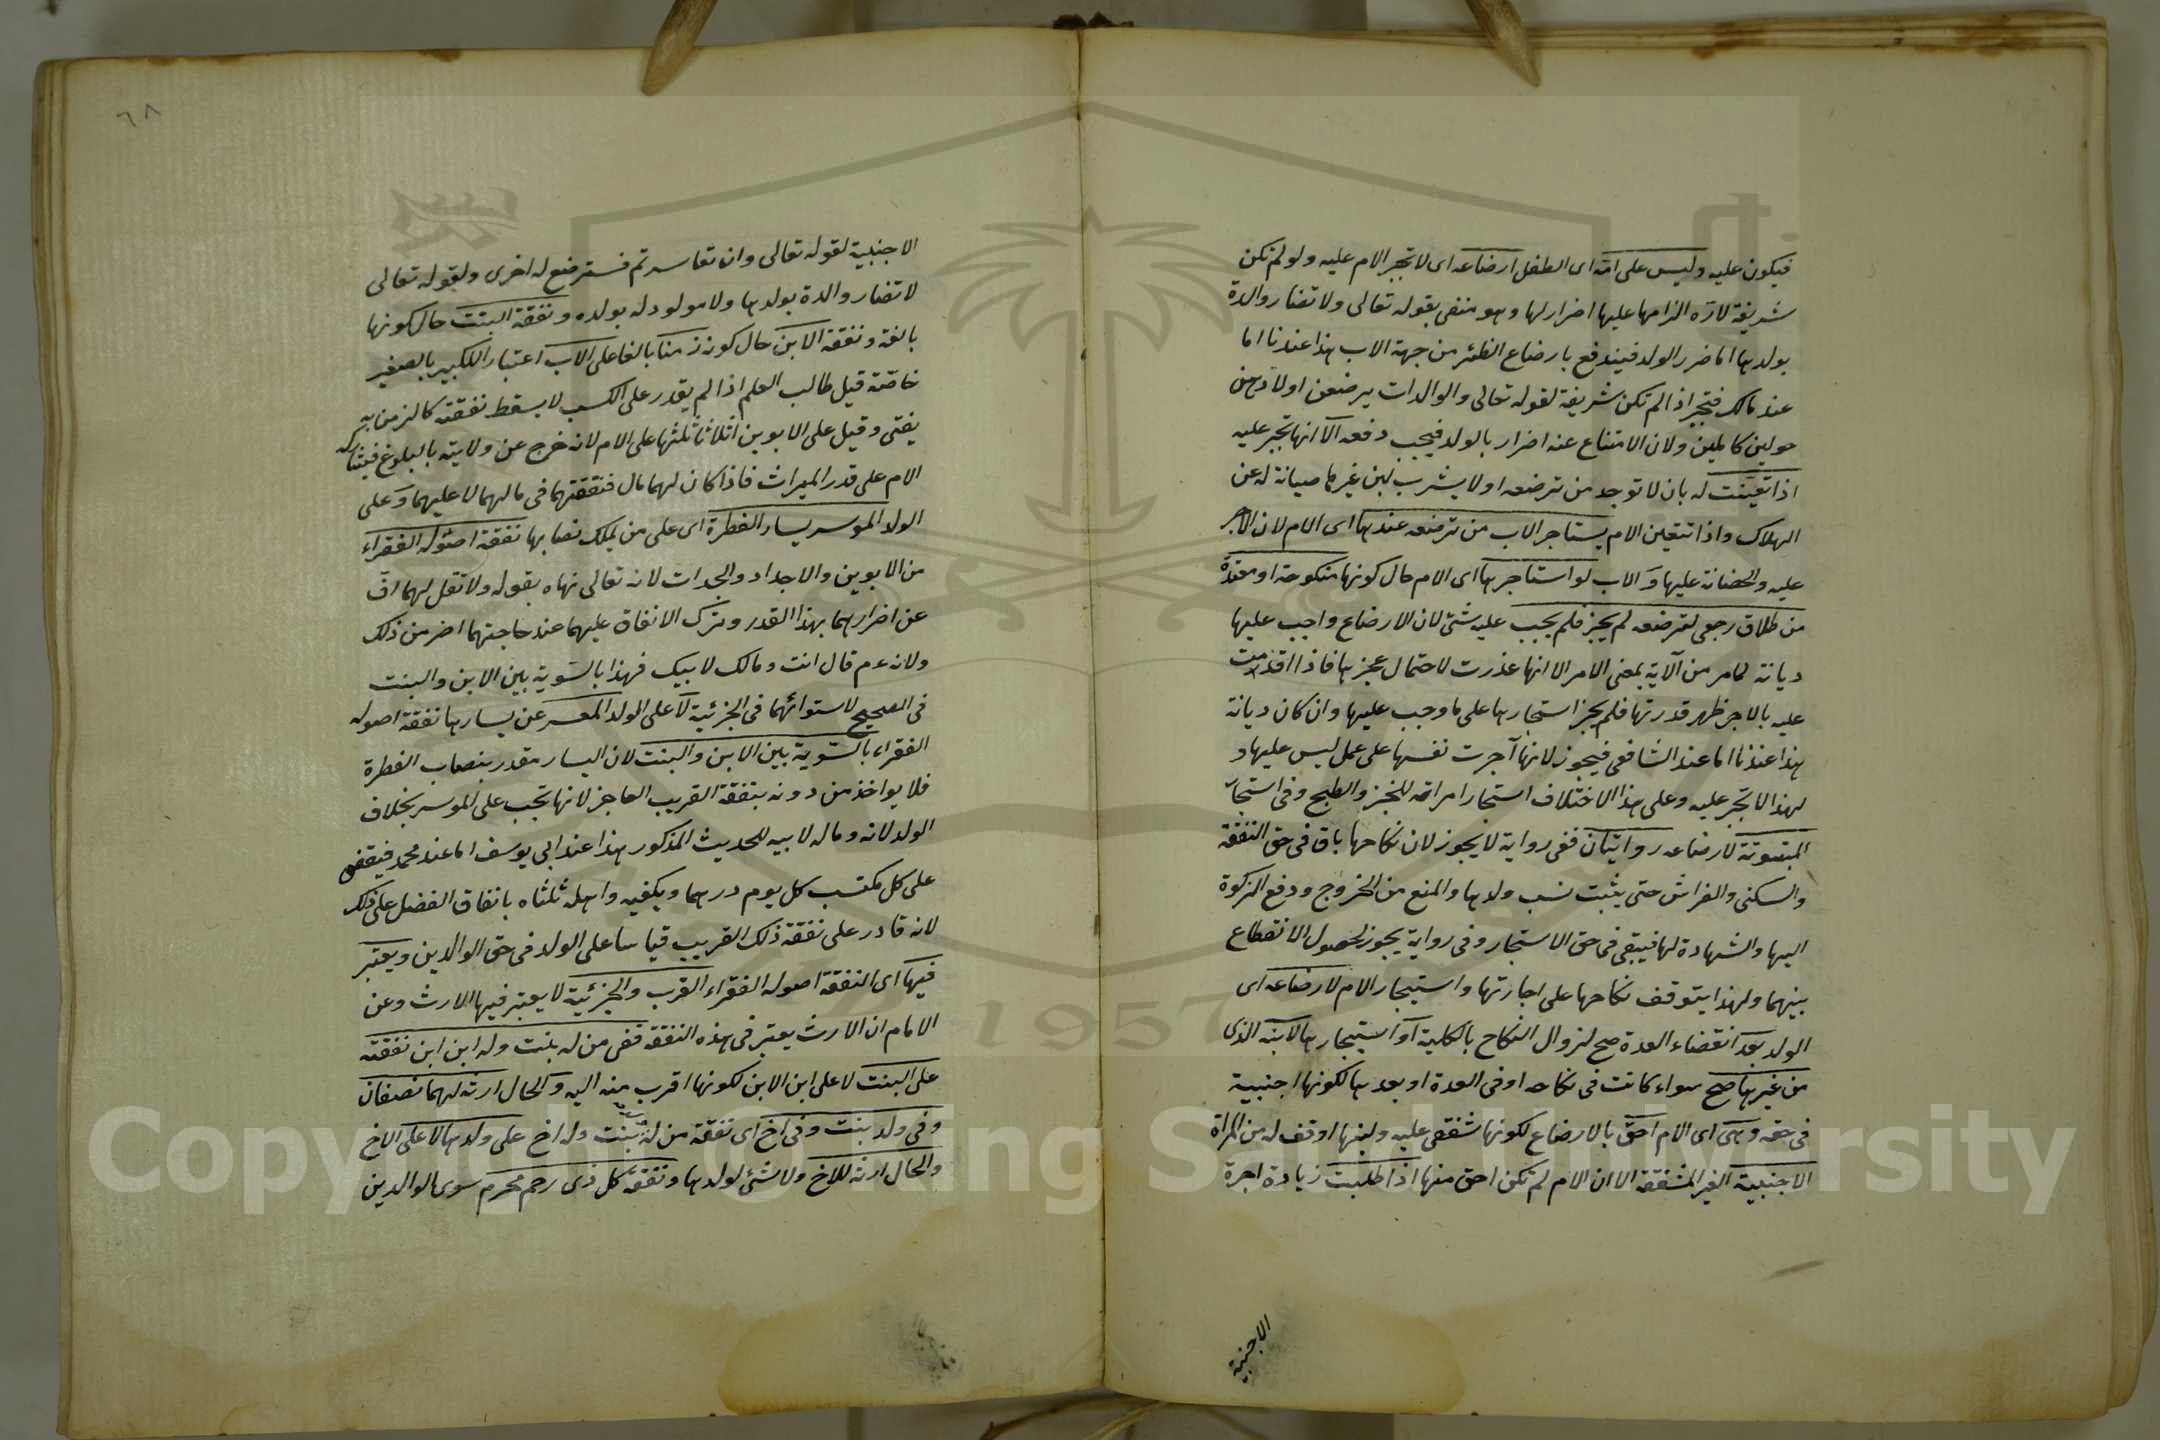 فيكون عليه وليس على امّه اى الطفل ارضاعه اى لا تجبر الام عليه ولو لم تكن
شريفة لانّه الزامها عليها اضرار لها وهو منفى بقوله تعالى ولا تضار والدة
بولدها اما ضرر الولد فيندفع بارضاع الظئر من جهة الاب هذا عندنا اما
عند مالك فتجبر اذا لم تكن شريفة لقوله تعالى والوالدات يرضعن اولادهن
حولين كاملين ولان الامتناع عنه اضرار بالولد فيجب دفعه الّا انها تجبر عليه
اذا تعيّنت له بان لا توجد من ترضعه او لا يشرب لبن غيرها صيانة له عن
الهلاك واذا تتعين الام يستاجر الاب من ترضعه عندها اى الام لان الاجر
عليه والحضانة عليها وَ الاب لو استاجرها اى الام حال كونها منكوحة او معتدة
من طلاق رجعى لترضعه لم يجز فلم يجب عليه شئ لان الارضاع واجب عليها
ديانة لما مر من الآية بمعنى الامر الا انها عذرت لاحتمال عجزها فاذا اقدمت
عليه بالاجر ظهر قدرتها فلم يجز استجارها على ما وجب عليها وان كان ديانة
هذا عندنا اما عند الشافعى فيجوز لانها آجرت نفسها على عمل ليس عليها و
لهذا لا تجبر عليه وعلى هذا الاختلاف استجار امراته للخبز والطبخ وفى استجا
المبتوتة لارضاعه روايتان ففى رواية لا يجوز لان نكاحها باق فى حق النفقة
والسكنى والفراش حتى يثبت نسب ولدها والمنع من الخروج ودفع الزكوة
اليها والشهادة لها فيبقى فى حق الاستجار وفى رواية يجوز لحصول الانقطاع
بينهما ولهذا يتوقف نكاحها على اجازتها واستيجار الام لارضاعه اى
الولد بعد انقضاء العدة صح لزوال النكاح بالكلية اَوْ استيجارها لابنه الذى
من غيرها صح سواء كانت فى نكاحه او فى العدة او بعدها لكونها اجنبية
فى حقه وَ هى اى الام احقّ بالارضاع لكونها شفقى عليه ولبنها اوقف له من المراة
الاجنبية الغير المشفقة الا ان الام لم تكن احق منها اذا طلبت زيادة اجرة
الاجنبية
٦٨
الاجنبية لقوله تعالى وان تعاسرتم فسترضع له اخرى ولقوله تعالى
لا تضار والدة بولدها ولا مولود له بولده و نفقة البنت حال كونها
بالغة و نفقة الابن حال كونه زمنا بالغا على الاب اعتبارا للكبير بالصغير
خاصّة قيل طالب العلم اذا لم يقدر على الكسب لا يسقط نفقته كالزمن به
يفتى وقيل على الابوين اثلاثا ثلثها على الام لانه خرج عن ولايته بالبلوغ فيشاركه
الام على قدر الميراث فاذا كان لهما مال فنفقتهما فى مالهما لا عليهما وَ على
الولد الموسر يساء الفطرة اى على من يملك نصابها نفقة اصوله الفقراء
من الابوين والاجداد والجدات لانه تعالى نهاه بقوله ولا تقل لهما افّ
عن اضرارهما بهذا القدر وترك الانفاق عليهما عند حاجتهما اضر من ذلك
ولانه عم قال انت ومالك لابيك فهذا بالسّوية بين الابن والبنت
فى الصحيح لاستوائهما فى الجزئية لا على الولد المعسر عن يسارها نفقة اصوله
الفقراء بالسّوية بين الابن والبنت لان اليسار مقدر بنصاب الفطرة
فلا يواخذ من دونه بنفقة القريب العاجز لانها تجب على الموسر بخلاف
الولد لانه وماله لابيه للحديث المذكور هذا عند ابى يوسف اما عند محمد فيقضى
على كل مكتسب كل يوم درهما ويكفيه واهله ثلثاه بانفاق الفضل على ذلك
لانه قادر على نفقة ذلك القريب قياسا على الولد فى حق الوالدين ويعتبر
فيها اى النفقة اصوله الفقراء القرب والجزئية لا يعتبر فيها الارث وعن
الامام ان الارث يعتبر فى هذه النفقة ففى من له بنت وله ابن ابن نفقته
على البنت لا على ابن الابن لكونها اقرب منه اليه وَ الحال ارثه لهما نصفان
وفى ولد بنت وفى اخ اى نفقة من له بنت وله اخ على ولدها لا على الاخ
والحال ارثه للاخ ولا شئ لولدها ونفقة كل ذى رحم محرم سوى الوالدين
1957
Copyright © King Saud University